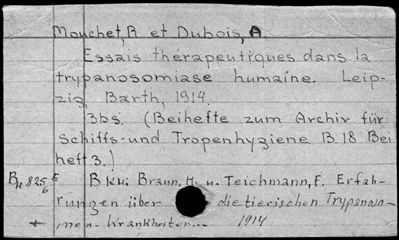 Mouchet, R et Dubois, A.
Essais thérapeutiques dans la
trypanosomiase humaine. Leip-
zig, Barth, 1914.
3bs. (Beihefte zum Archiv für
Schiffs- und Tropenhygiene. B. 18 Bei
heft 3.)
B ku. Braun, H. u. Teichmann, F. Erfah-
rungen über die tierischen Trypanoso-
men-Krankheiten... 1914